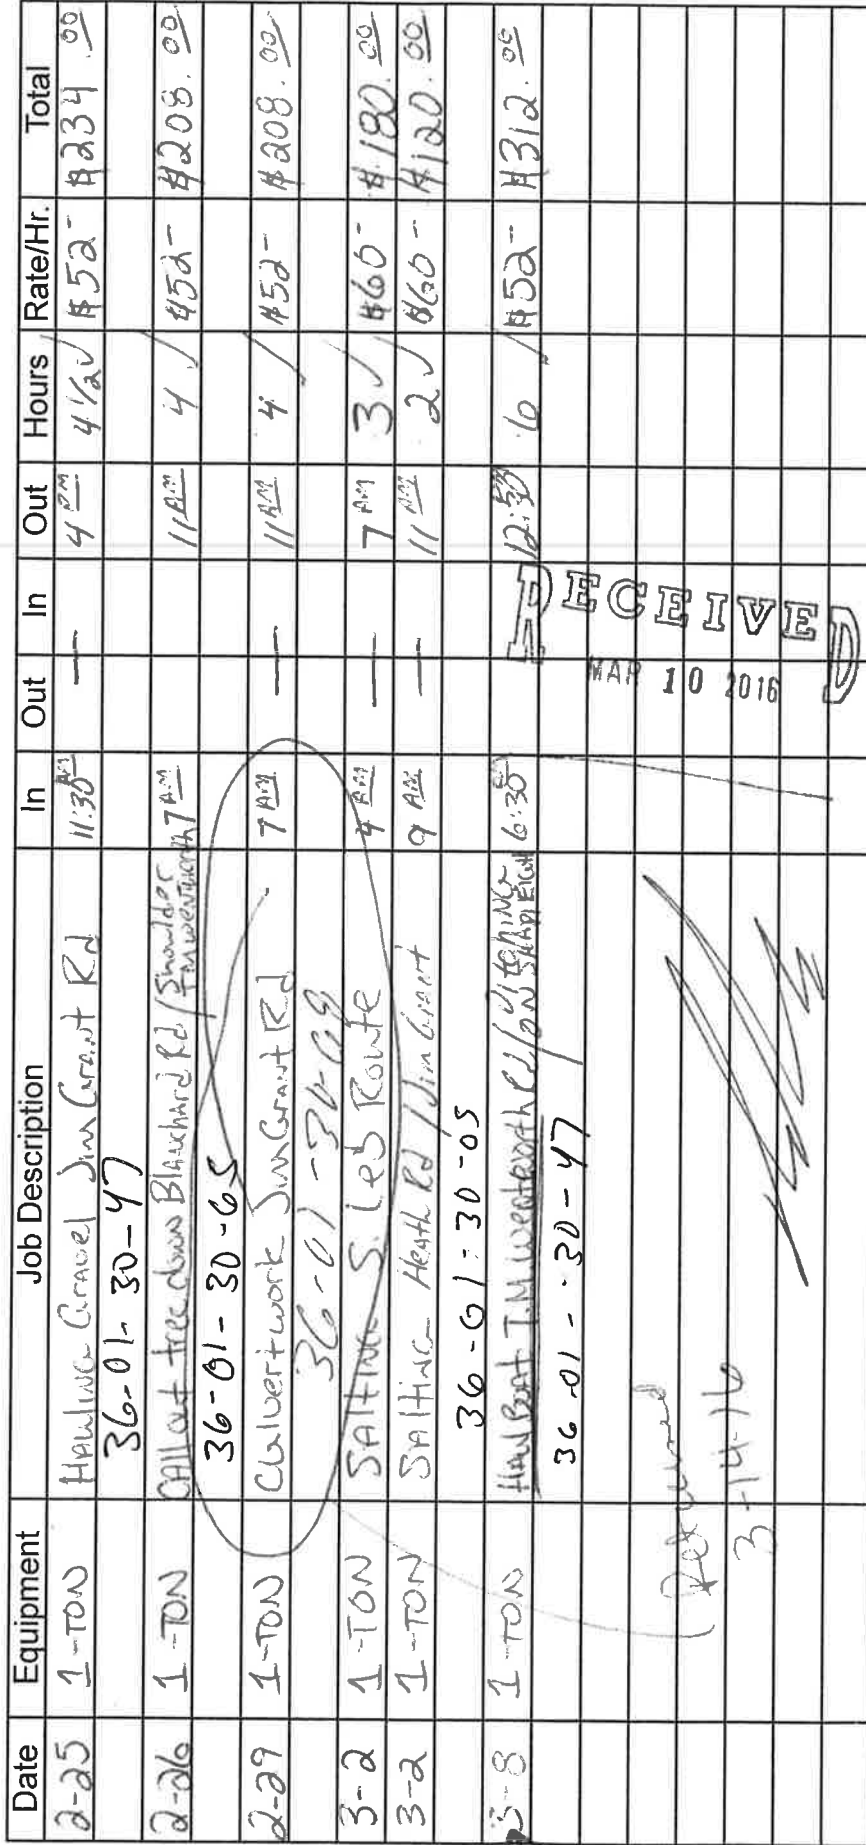 Date Equipment Job Description In Out In Out Hours Rate/Hr. Total
2-25 1-TON HAULING Gravel Jim Grant Rd 11:30 AM — 4 PM 4 1/2 ✓ $52- $234.00
36-01-30-47
2-26 1-TON CAll out tree down Blanchard Rd / Shoulder 7 AM 11 AM 4 / $52- $208.00
T.M. Wentworth
36-01-30-65
2-29 1-TON Culvert work Jim Grant Rd 7 AM — 11 AM 4 / $52- $208.00
36-01-30-
3-2 1-TON SAlTING S. Leb Route 4 AM — 7 AM 3 ✓ $60- $180.00
3-2 1-TON SAlTING Heath Rd / Jim Grant 9 AM — 11 AM 2 ✓ $60- $120.00
36-01-30-05
3-8 1-TON T.M. Wentworth Rd / DITCHING 6:30 12:30 6 / $52- $312.00
ON SHAPLEIGH
36-01-30-47
RECEIVED
MAR 10 2016
Returned
3-14-16